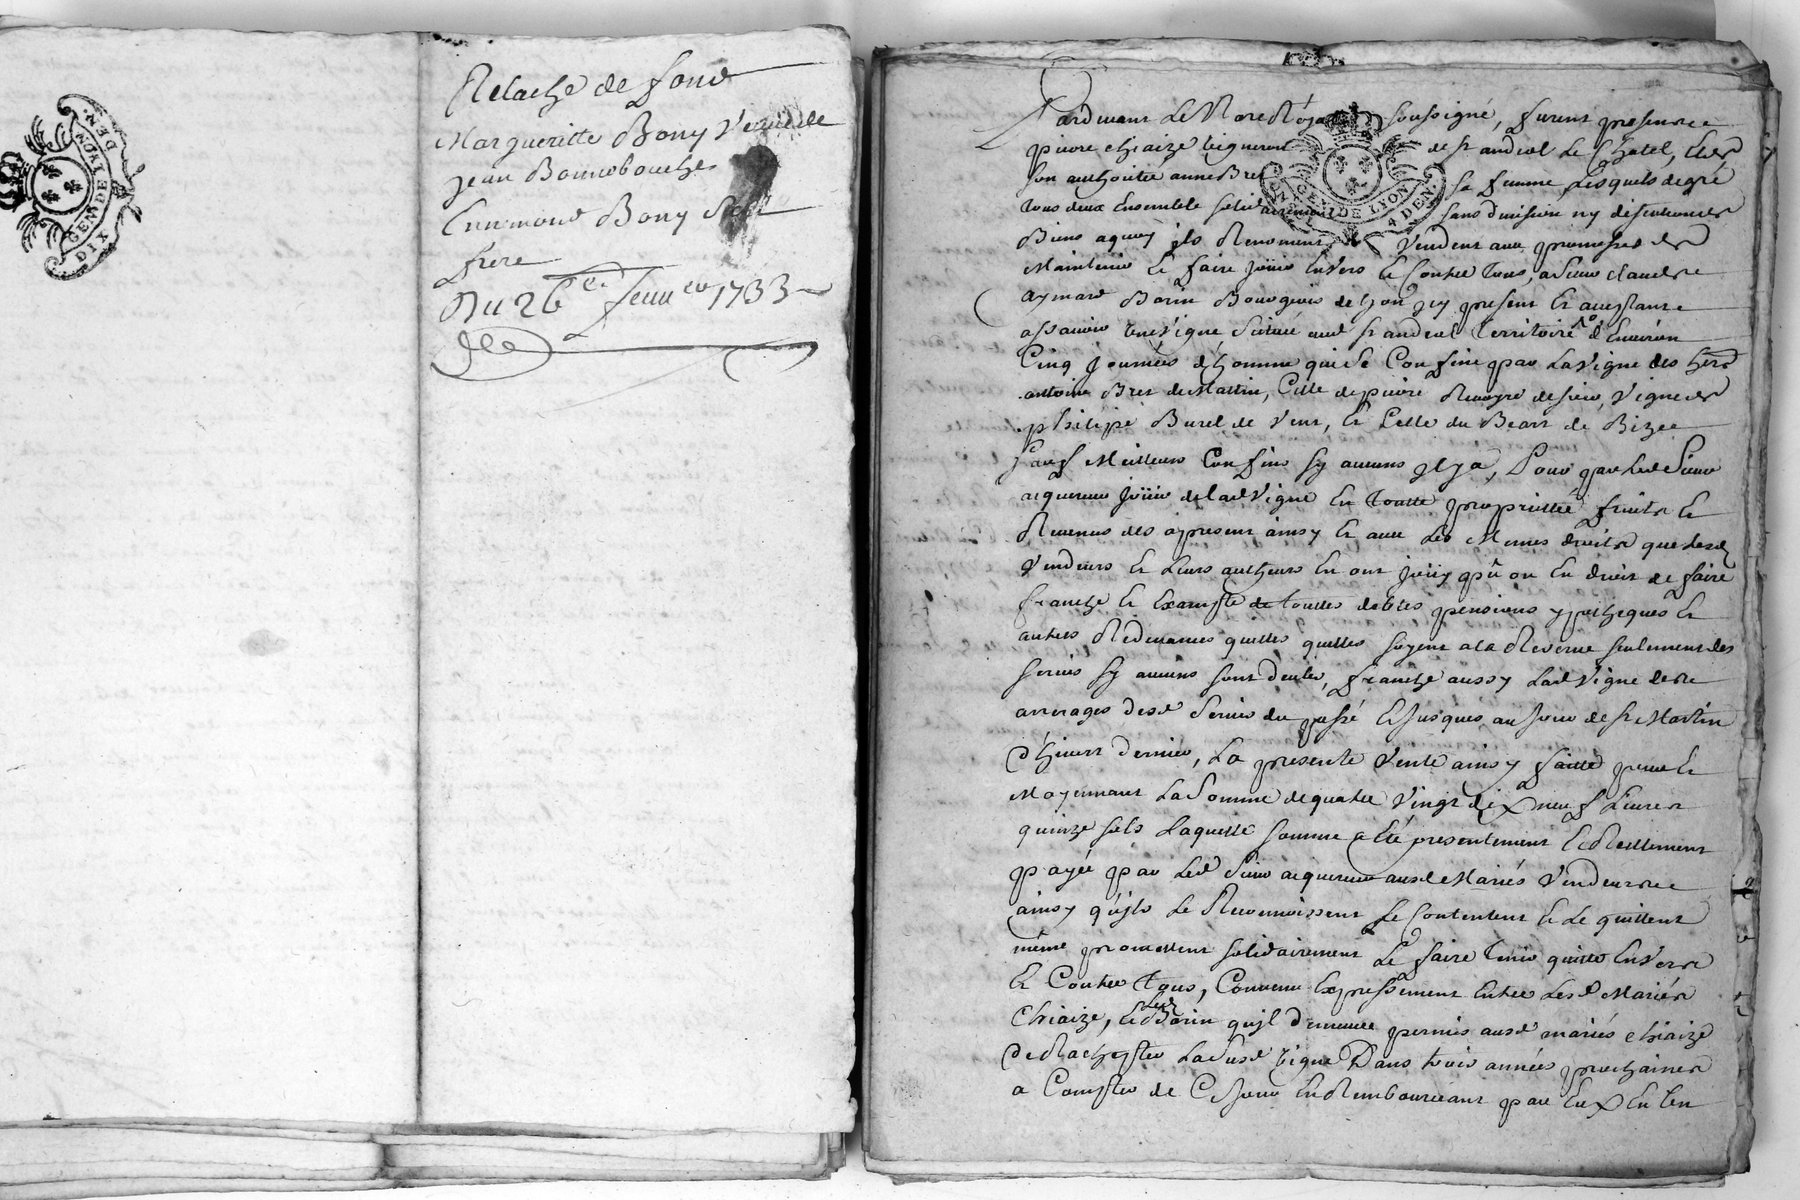 GEN. DE LYON
DIX DEN.
Relache de fond
Margueritte Bony Veuve de
Jean Bonnebouche
Ennemond Bony Son
frere
Du 26e Janv 1733
Pardevant Le No.re Royal soussigné, furent presents
pierre chiaize vigneron de st andeol Le Chatel, Et de
son authorité anne Bret sa femme, Lesquels de gré
tous deux Ensemble solidairement sans division ny discution de
Biens a quoy ils Renoncent Vendent avec promesses de
Maintenir Et faire joüir Envers Et Contre tous, a Sieur claude
aymard Borin Bourgeois de Lyon icy present Et acceptant
GEN. DE LYON 4 DEN.
assavoir une vigne Scituée aud st andeol territoire d'Environ
Cinq journées d'homme qui se Confine par La vigne des hers
antoine Bret de Matin, Celle de pierre de soir, vigne de
philipe Burel de vent, Et Celle du de Bize
sauf Meilleurs Confins sy aucuns il y a, Pour par Led Sieur
acquereur joüir de Lad vigne En toutte proprietté fruits Et
Revenus des apresent ainsy Et avec Les Memes droits que Lesd
vendeurs Et Leurs autheurs En ont joüy pû ou En droit de faire
franche Et Exampte de touttes debtes pensions ypotheques Et
autres Redevances quelles quelles soyent a la Reserve seulement des
servis sy aucuns sont deubs, franche aussy Lad vigne des
arrerages desd Servis du passé Et jusques au jour de st Martin
d'hivert dernier, La presente vente ainsy faitte pour Et
Moyennant La Somme de quatre vingt dix neuf Livres
quinze sols Laquelle somme a Eté presentement Et Reellement
payée par Led Sieur acquereur ausd Mariés vendeurs
ainsy qu'ils Le Reconnoissent Le Contentent Et Le quittent
même promettent solidairement Le faire tenir quitte Envers
Et Contre tous, Convenu Expressement Entre Lesd Mariés
Chiaize, Et Led Borin qu'il demeure permis ausd mariés chiaize
de Rachepter La Susd vigne Dans trois années prochaines
a Compter de Ce jour En Remboursant par Eux En Un